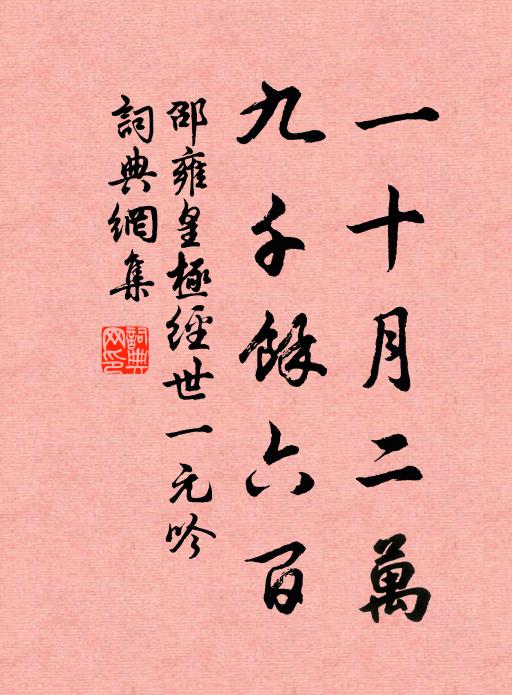 一十月二萬
九千餘六百
邵雍皇極經世一元吟
詞典網集
詞典网印